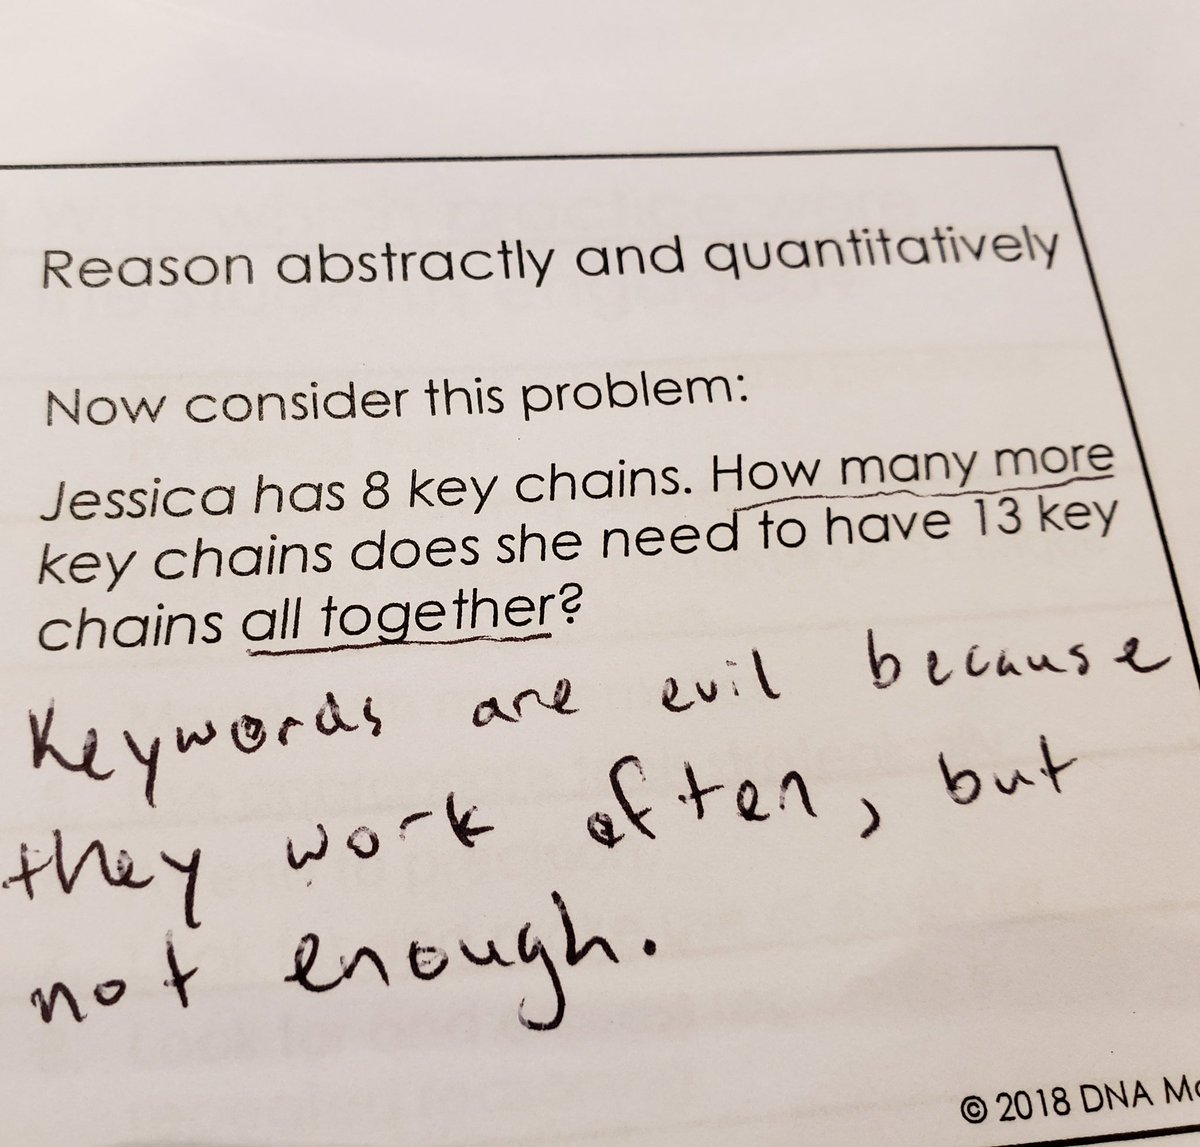 Reason abstractly and quantitatively
Now consider this problem:
Jessica has 8 key chains. How many more
key chains does she need to have 13 key
chains all together?
Keywords are evil because
they work often, but
not enough.
© 2018 DNA